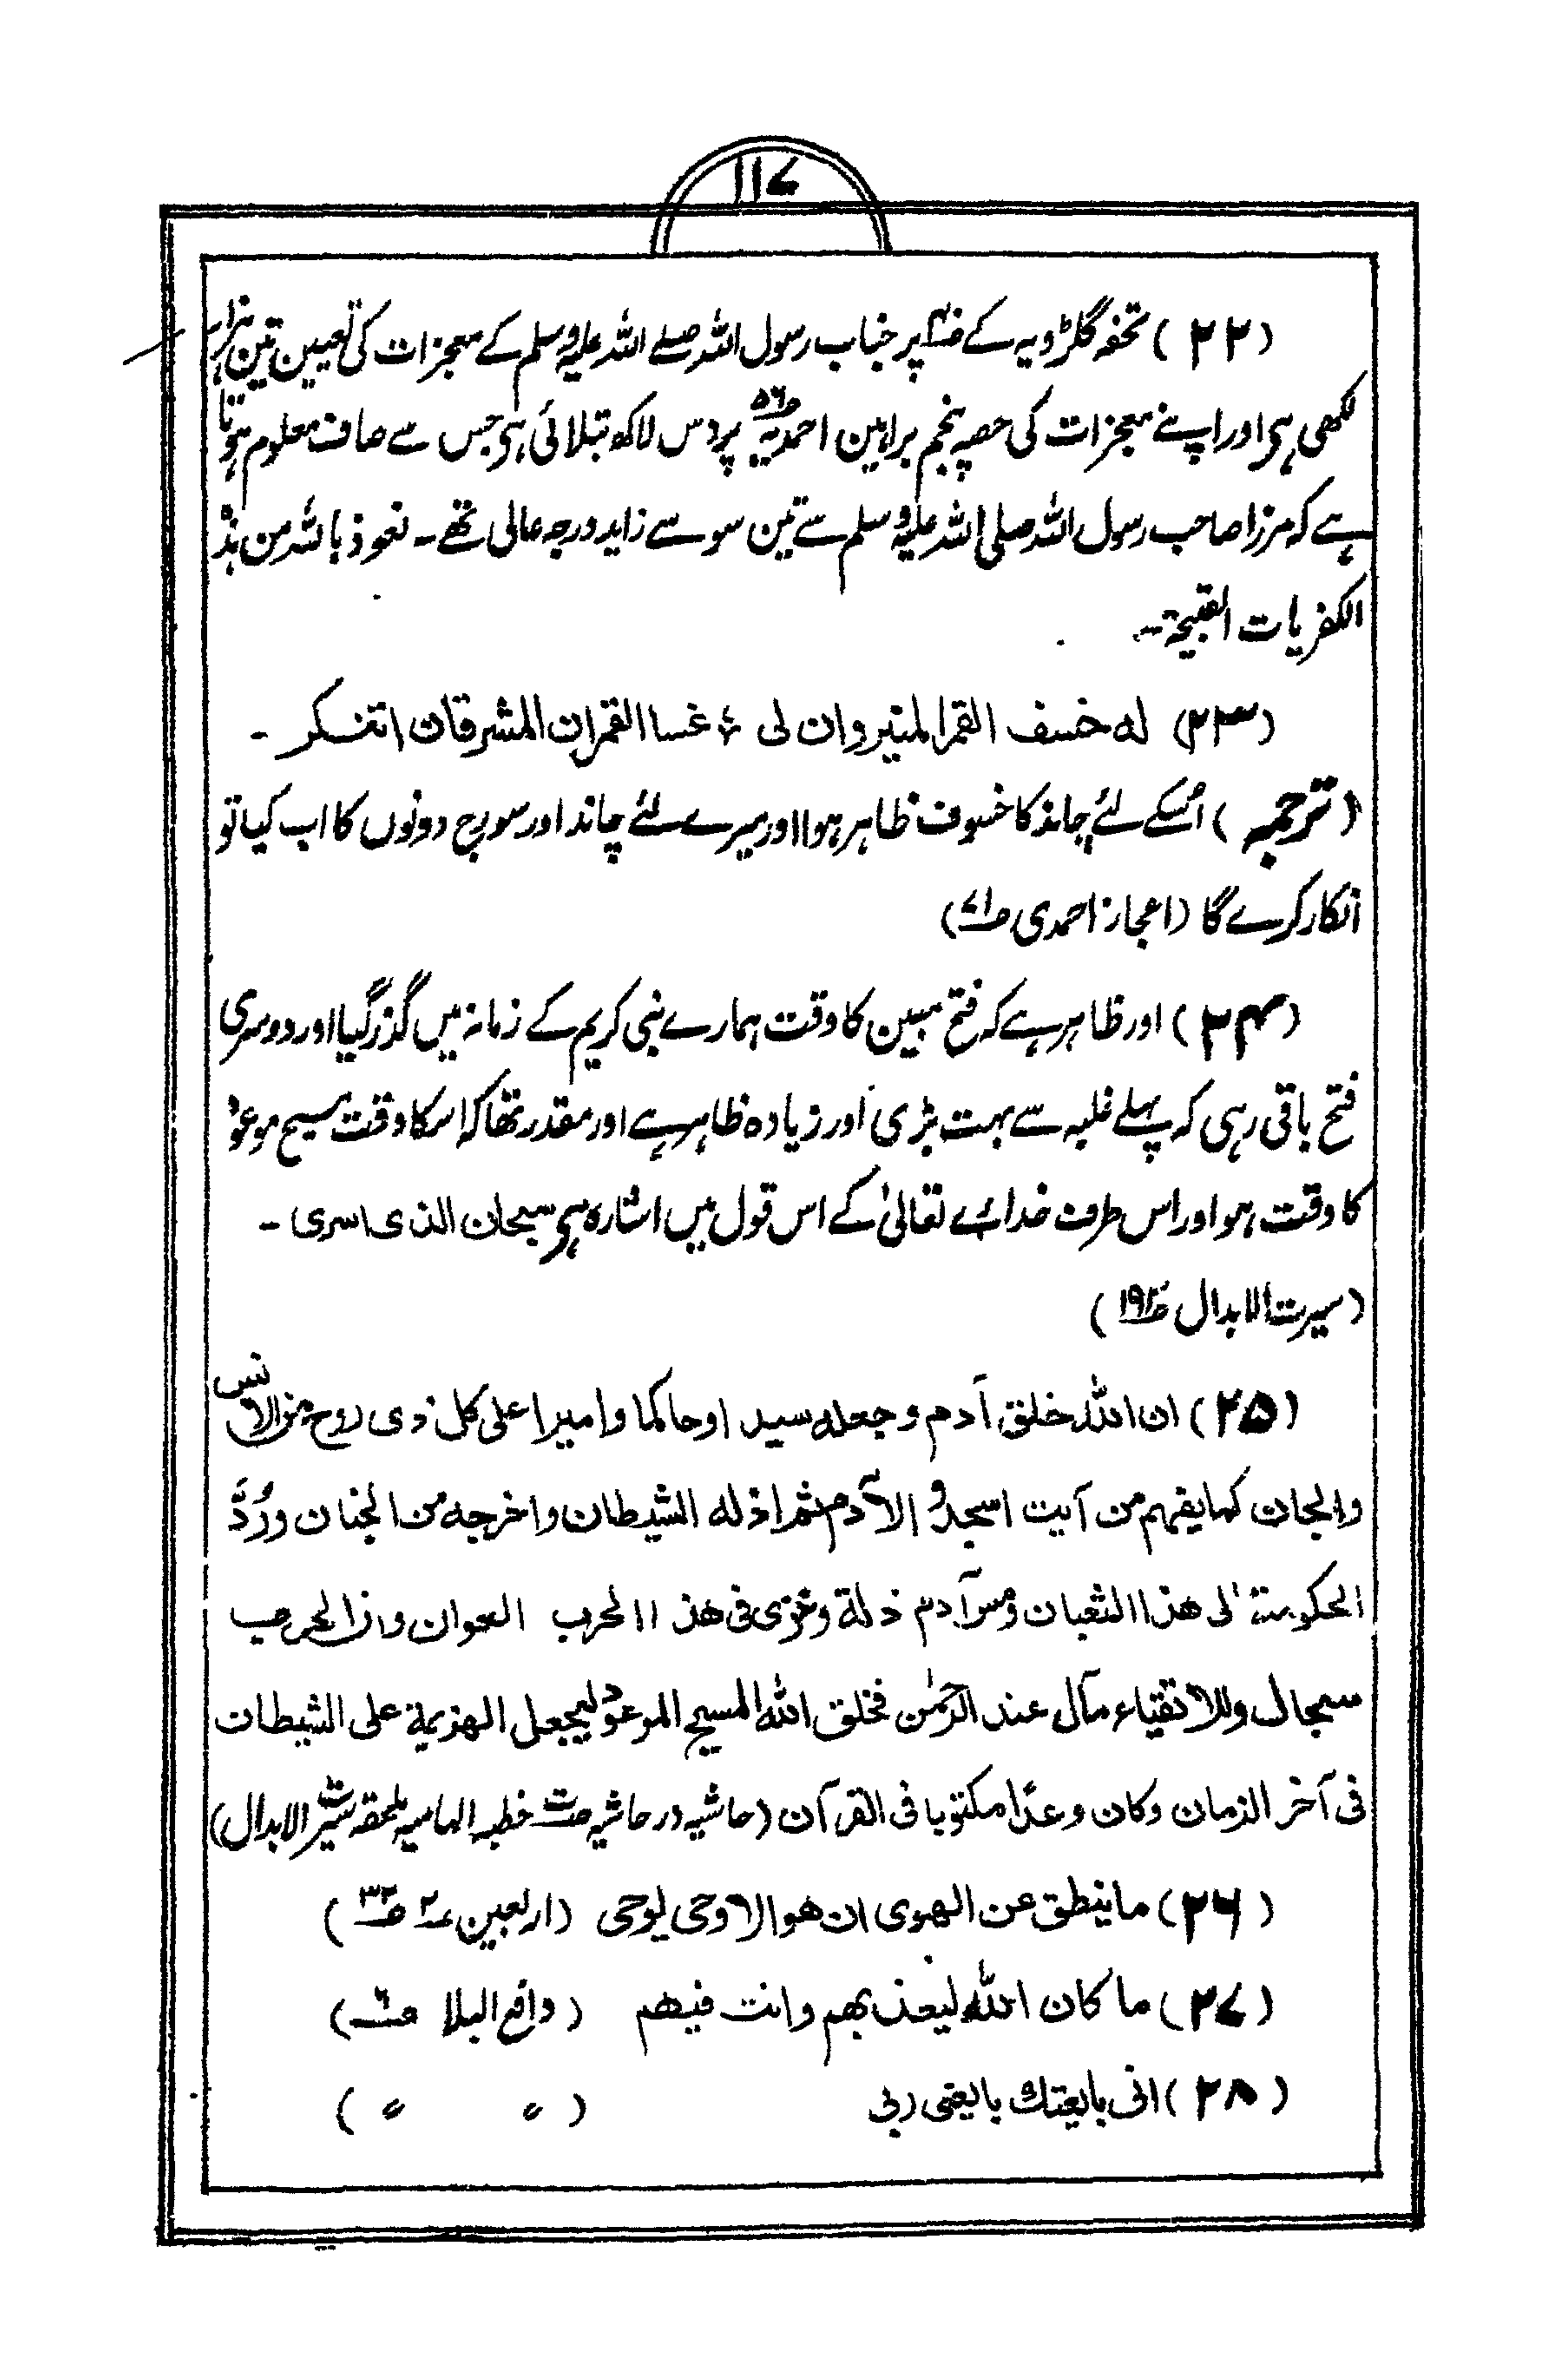 ۱۱۷
(۲۲) تحفہ گلڑویہ کے ص۴۰ پر جناب رسول اللہ صلے اللہ علیہ وسلم کے معجزات کی تعیین تین ہزار
لکھی ہے اور اپنے معجزات کی حصہ پنجم براہین احمدیہ ص۵۶ پر دس لاکھ تبلائی ہی جس سے صاف معلوم ہوتا
ہے کہ مرزا صاحب رسول اللہ صلی اللہ علیہ وسلم سے تین سو سے زاید درجہ عالی تھے۔ نعوذ باللہ من ہذہ
الکفریات القبیحۃ۔
(۲۳) له خسف القمر المنیر وان لی ؛ غسا القمران المشرقان اتنکر ۔
(ترجمہ) اُسکے لئے چاند کا خسوف ظاہر ہوا اور میرے لئے چاند اور سورج دونوں کا اب کیا تو
انکار کرے گا (اعجاز احمدی ص۷۱)
(۲۴) اور ظاہر ہے کہ فتح مبین کا وقت ہمارے نبی کریم کے زمانہ میں گذر گیا اور دوسری
فتح باقی رہی کہ پہلے غلبہ سے بہت بڑی اور زیادہ ظاہر ہے اور مقدر تھا کہ اسکا وقت مسیح موعود
کا وقت ہو اور اس طرف خدائے تعالیٰ کے اس قول میں اشارہ ہے سبحان الذی اسری ۔
(سیرت الابدال ص۱۹۳)
(۲۵) ان اللہ خلق آدم وجعلہ سیدا وحاکما وامیرا علی کل ذی روح من الانس
والجان کما یفہم من آیت اسجدوا لآدم ثم ازله الشیطان واخرجه من الجنان ورُدَّ
الحکومۃ الی هذا الثعبان ومس آدم ذلة وخزی فی هذا الحرب العوان وان الحرب
سجال وللاتقیاء مآل عند الرحمٰن فخلق اللہ المسیح الموعود لیجعل الهزیمة علی الشیطان
فی آخر الزمان وکان وعدًا مکتوبا فی القرآن (حاشیہ در حاشیہ خطبہ الہامیہ ملحقہ سیرت الابدال)
(۲۶) ما ینطق عن الهوی ان هو الا وحی یوحی (اربعین ۲ ص۳۳)
(۲۷) ما کان اللہ لیعذبهم وانت فیهم (دافع البلا ص۶)
(۲۸) انی بایعتك بایعنی ربی (〃 〃)